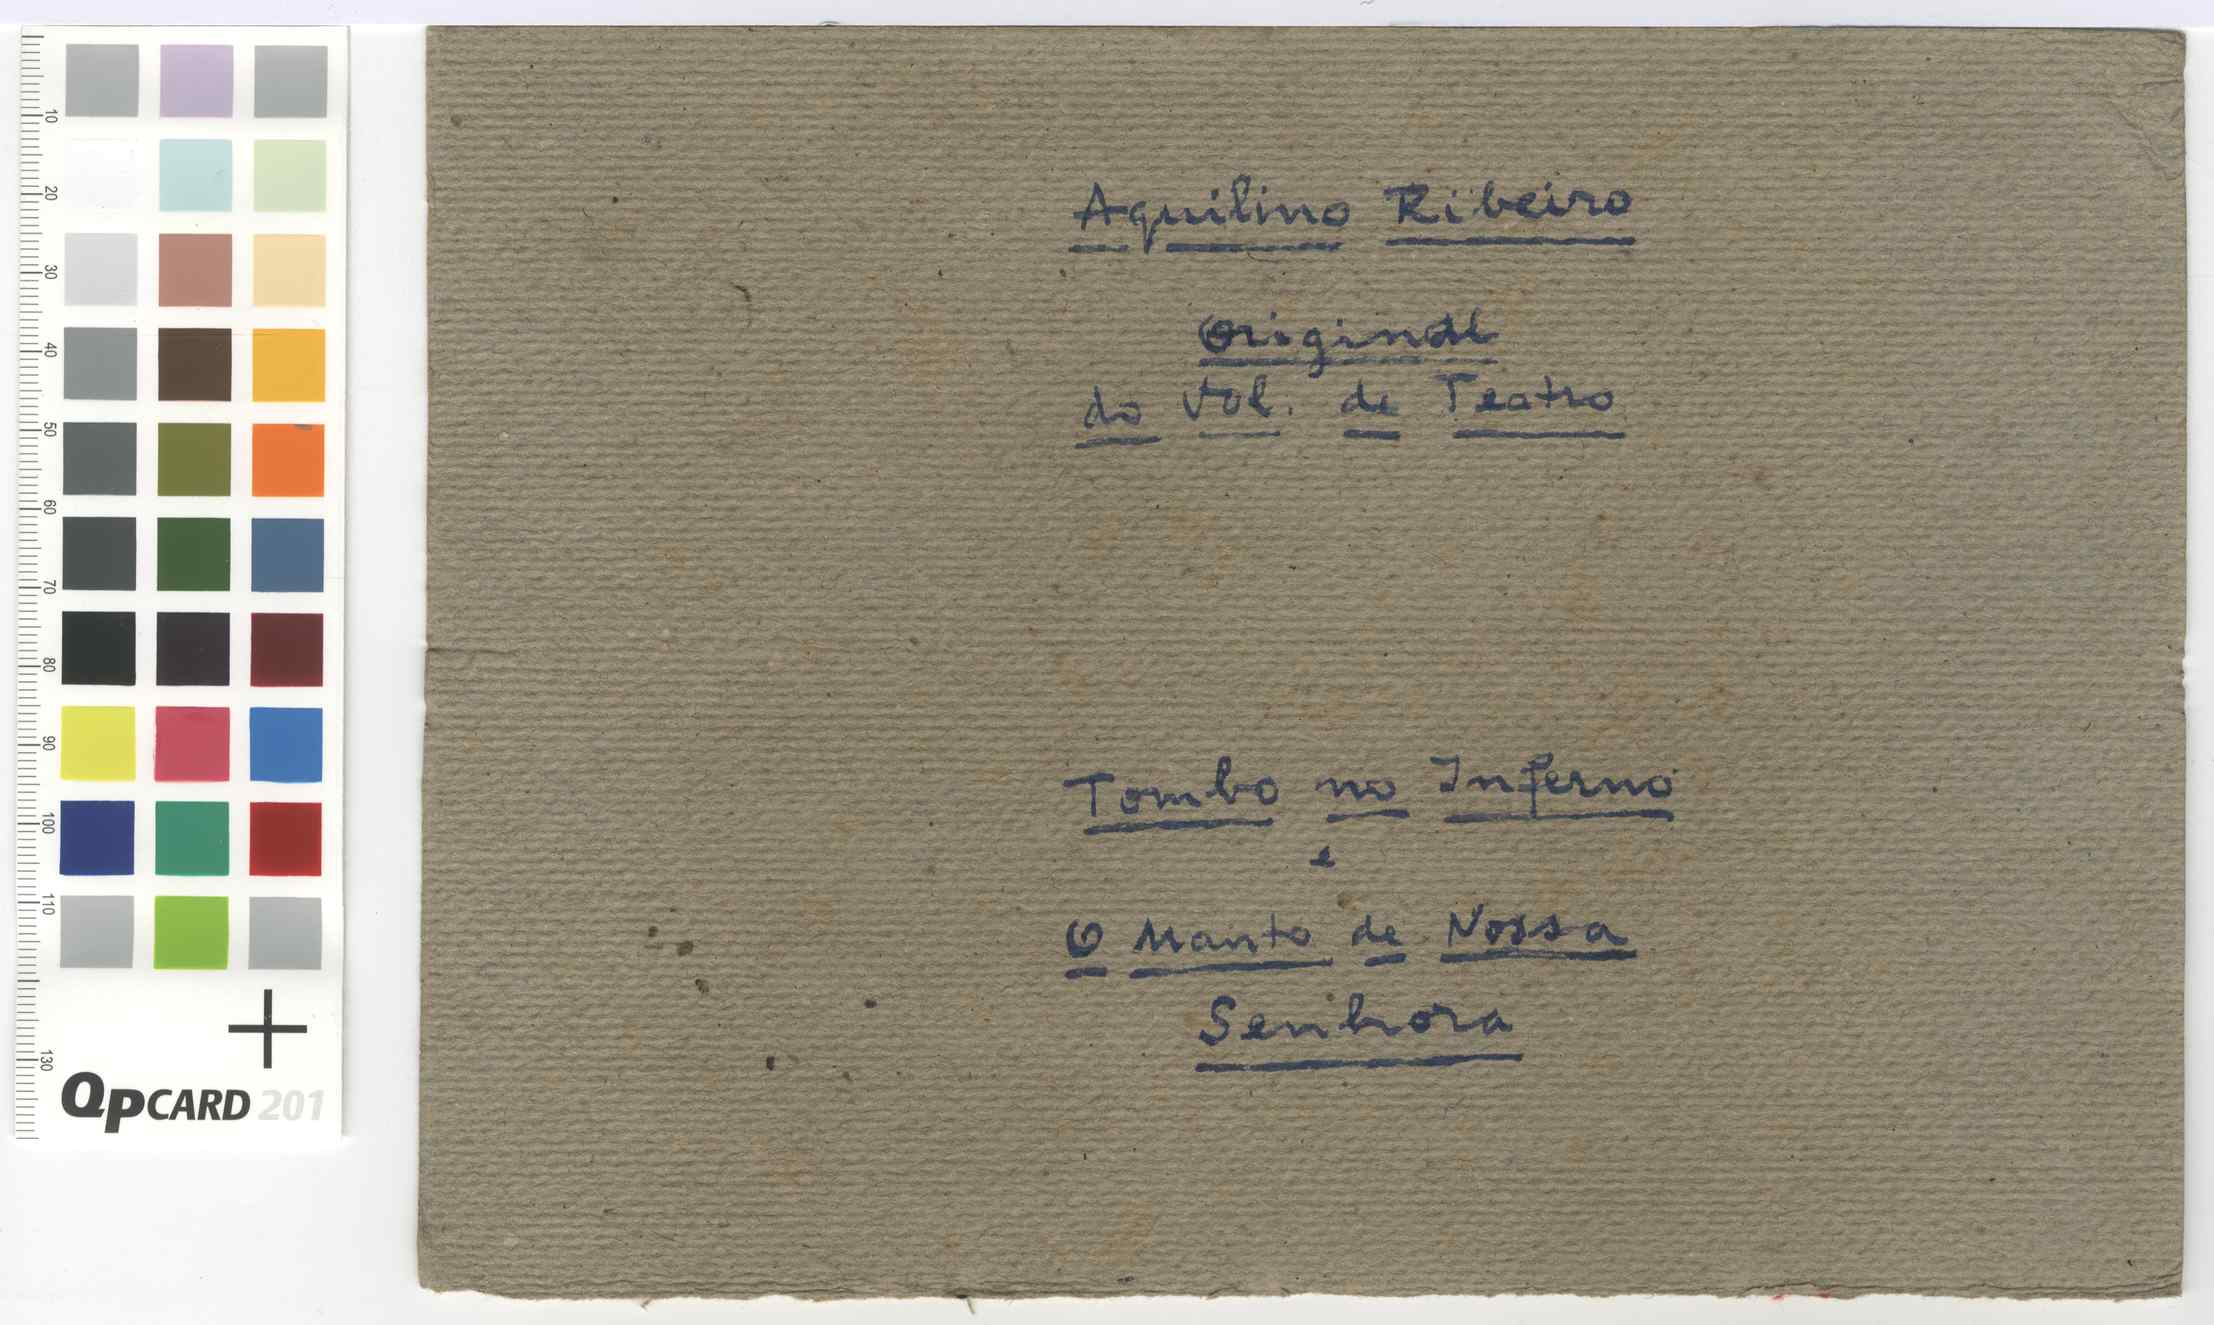 10
20
30
40
50
60
70
80
90
100
110
130
QpCARD 201
Aquilino Ribeiro
Original
do Vol. de Teatro
Tombo no Inferno
e
O Manto de Nossa
Senhora